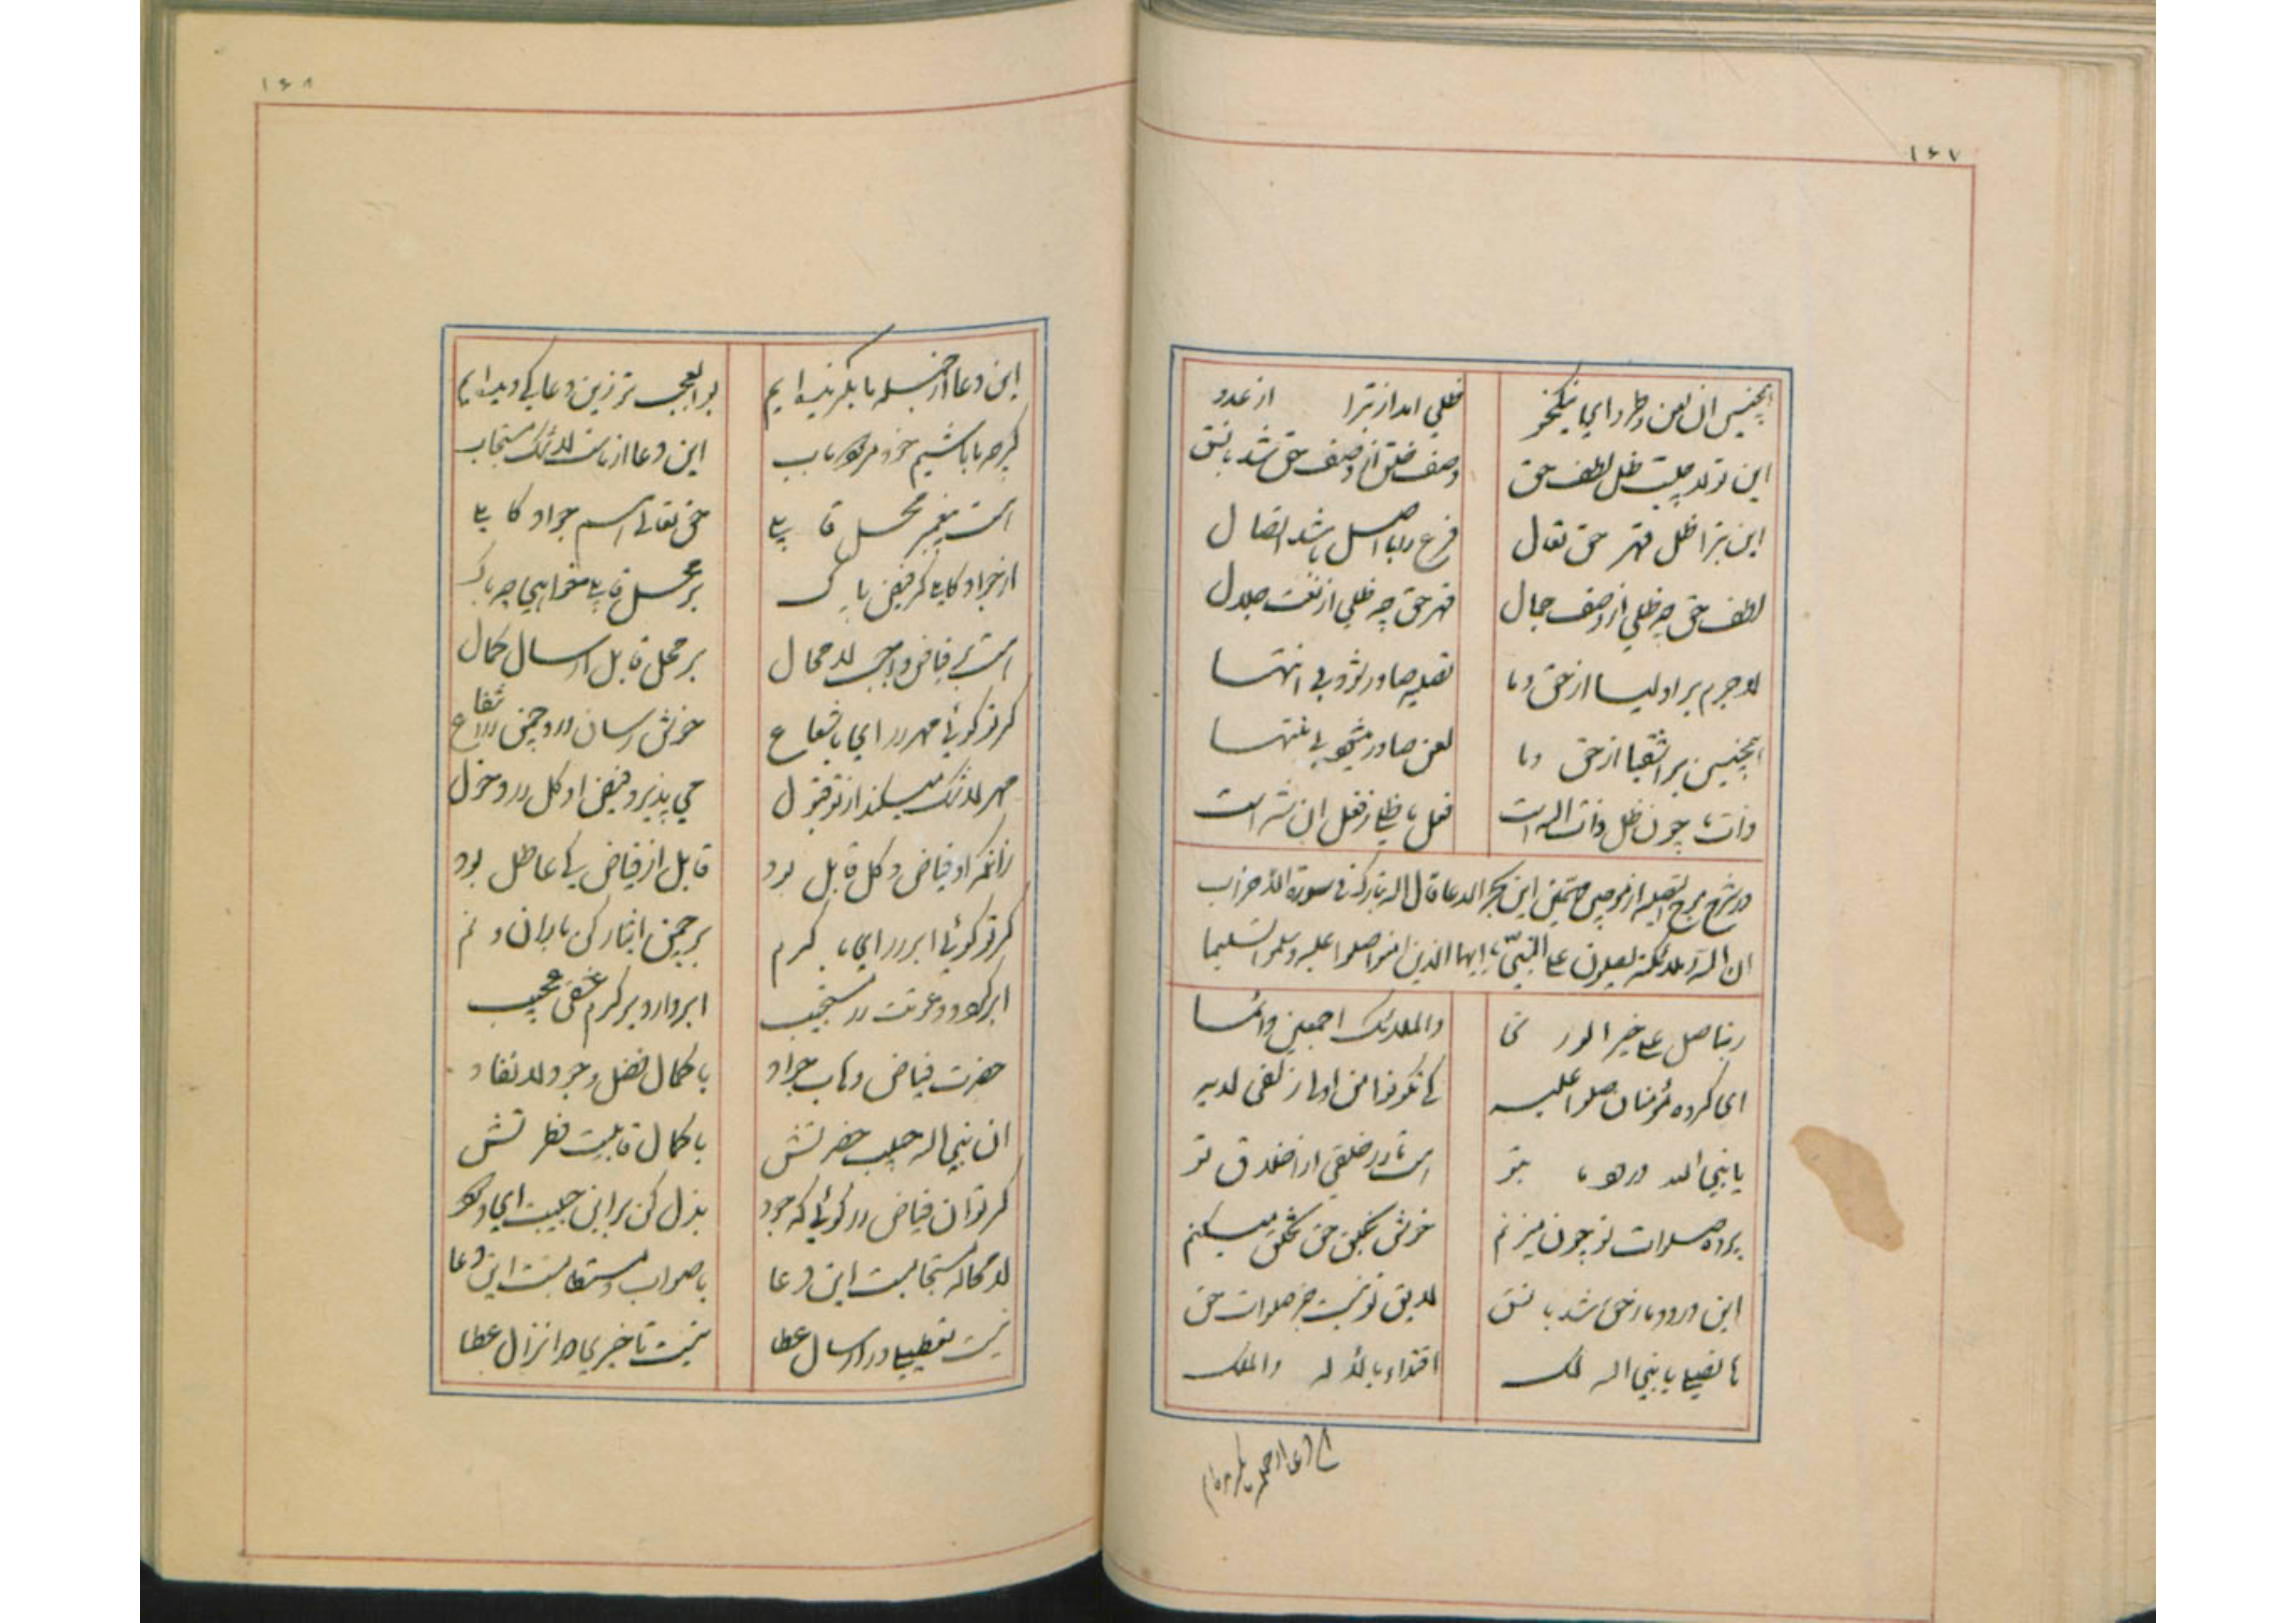 ۱۶۷
همچنین آن لعن و طرد ای نیکخو
ظلی آمد از تبرا از عدو
این تولا چیست ظل لطف حق
وصف خلق از وصف حق شد با نسق
این تبرا ظل قهر حق تعال
فرع را با اصل باشد اتصال
لطف حق چه ظلی از وصف جمال
قهر حق چه ظلی از نعت جلال
لاجرم بر اولیا از حق و ما
تصلیه صادر شود بی انتها
همچنین بر اشقیا از حق و ما
لعن صادر میشود بی منتها
ذات ما چون ظل ذات اله است
فعل ما ظلی ز فعل آن شه است
در شرح
تصلیه
این
الدعا قال اله تبارک فی سورة الاحزاب
ان اله و ملائکته یصلون علی النبی یا ایها الذین امنوا صلوا علیه و سلموا تسلیما
ربنا صل علی خیر الوری
والملائک اجمعین
ای گروه مؤمنان صلوا علیه
کی تکونوا من زلفی لدیه
یا نبی الله درود ما بتو
است خلقی از اخلاق تو
صلوات تو چون میزنم
خویش بخلق حق تخلق میکنم
این درود ما ز حق شد با نسق
لایق تو نیست جز صلوات حق
ما نصلی یا نبی اله لک
اقتداء بالاله والملک
این دعا از جمله ما بکرنده ایم
۱۶۸
این دعا از جمله ما بکرنده ایم
بوالعجب تر زین دعا کی دیده ایم
گرچه ما باشیم خود مردود باب
این دعا از ماست لاشک مستجاب
است پیغمبر محل قابلی
حق تعالی اسم جواد کاملی
از جواد کاملی گر فیض پاک
بر محل قابلی خواهی چه باک
است بر فیاض واجب لا محال
بر محل قابل ارسال کمال
گر تو گوئی مهر را ای با شعاع
خویش رسان در چمن
مهر لاشک میکند از تو قبول
می پذیرد فیض او کل در دخول
زانکه او فیاض و کل قابل بود
قابل از فیاض کی عاطل بود
گر تو گوئی ابر را ای با کرم
بر چمن ایثار کن باران و نم
ابر دعوتت را مستجیب
ابر دارد بر کرم عشقی عجیب
حضرت فیاض وهاب جواد
با کمال فضل و جود لا نفاد
ان نبی اله حبیب حضرتش
با کمال قابلیت فطرتش
گر تو ان فیاض را گوئی که جود
بذل کن بر این حبیبت ای ودود
لا محاله مستجابست این دعا
با صواب و مستطابست این دعا
نیست تعطیلی در ارسال عطا
نیست تاخیری در انزال عطا